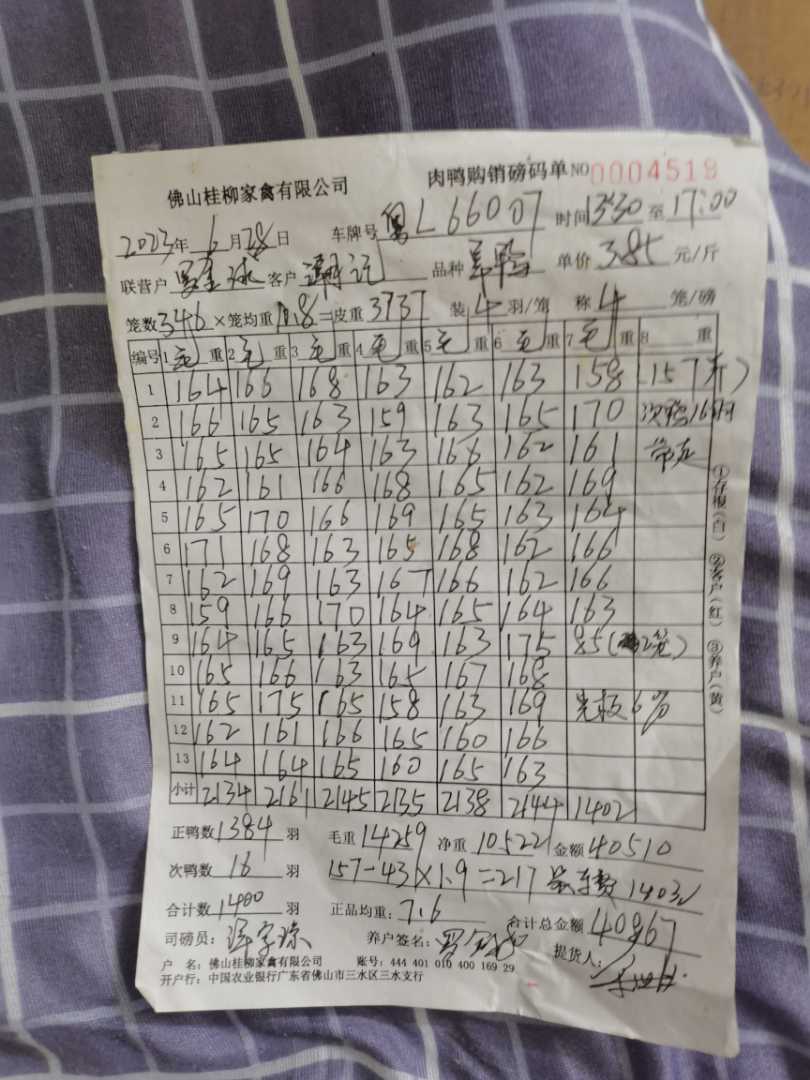 佛山桂柳家禽有限公司 肉鸭购销磅码单 NO 0004519
2023年 6月28日 车牌号 粤L66007 时间 13:30 至 17:00
联营户 客户 记 品种 单价 3.85 元/斤
笼数 346 × 笼均重 10.8 = 皮重 3737 装 4 羽/笼 称 4 笼/磅
编号 1 毛 重 2 毛 重 3 毛 重 4 毛 重 5 毛 重 6 毛 重 7 毛 重 8 重
1 164 166 168 163 162 163 158 157斤)
2 166 165 163 159 163 165 170 次鸭16只
3 165 165 164 163 166 162 161
4 162 161 166 168 165 162 169
5 165 170 166 169 165 163 164
6 171 168 163 165 168 162 166
7 162 169 163 167 166 162 166
8 159 166 170 164 165 164 163
9 164 165 163 169 163 175 85 (2笼)
10 165 166 163 165 167 168
11 165 175 165 158 163 169 6
12 162 161 166 165 160 166
13 164 164 165 160 165 163
小计 2134 2161 2145 2135 2138 2144 1402
正鸭数 1384 羽 毛重 14259 净重 10522 金额 40510
次鸭数 16 羽 157-43×1.9=217
合计数 1400 羽 正品均重: 7.6 合计总金额
司磅员: 养户签名: 提货人:
户 名: 佛山桂柳家禽有限公司 账号: 444 401 010 400 169 29
开户行: 中国农业银行广东省佛山市三水区三水支行
①存根(白) ②客户(红) ③养户(黄)